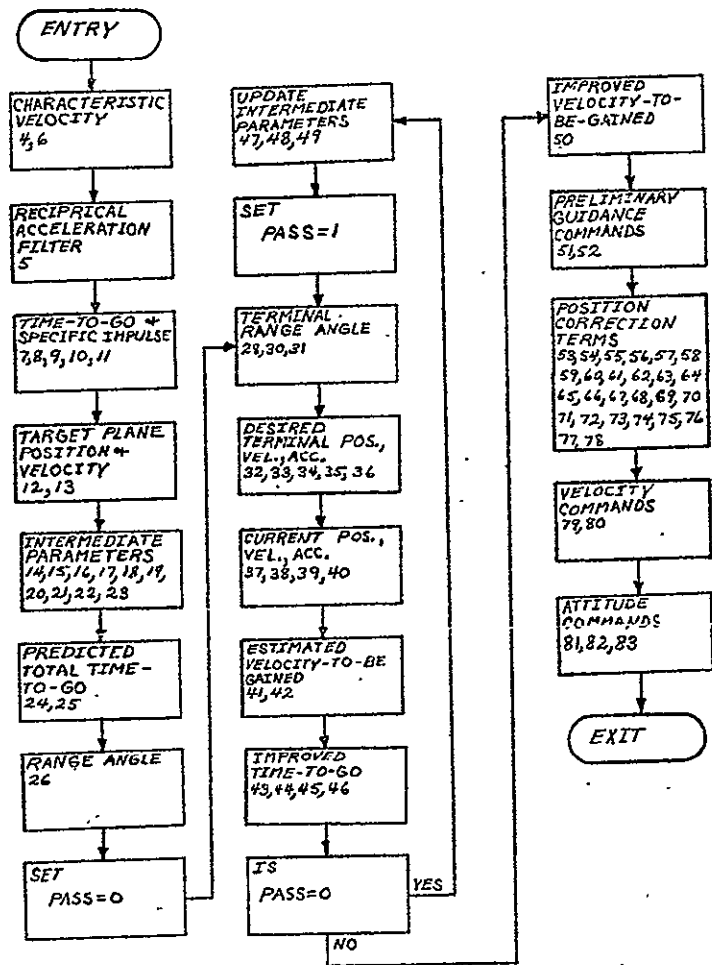 ENTRY
CHARACTERISTIC
VELOCITY
4,6
RECIPRICAL
ACCELERATION
FILTER
5
TIME-TO-GO &
SPECIFIC IMPULSE
7,8,9,10,11
TARGET PLANE
POSITION &
VELOCITY
12,13
INTERMEDIATE
PARAMETERS
14,15,16,17,18,19,
20,21,22,23
PREDICTED
TOTAL TIME-
TO-GO
24,25
RANGE ANGLE
26
SET
PASS=0
UPDATE
INTERMEDIATE
PARAMETERS
47,48,49
SET
PASS=1
TERMINAL
RANGE ANGLE
28,30,31
DESIRED
TERMINAL POS.,
VEL., ACC.
32,33,34,35,36
CURRENT POS.,
VEL., ACC.
37,38,39,40
ESTIMATED
VELOCITY-TO-BE
GAINED
41,42
IMPROVED
TIME-TO-GO
43,44,45,46
IS
PASS=0
YES
NO
IMPROVED
VELOCITY-TO-
BE-GAINED
50
PRELIMINARY
GUIDANCE
COMMANDS
51,52
POSITION
CORRECTION
TERMS
53,54,55,56,57,58
59,60,61,62,63,64
65,66,67,68,69,70
71,72,73,74,75,76
77,78
VELOCITY
COMMANDS
79,80
ATTITUDE
COMMANDS
81,82,83
EXIT